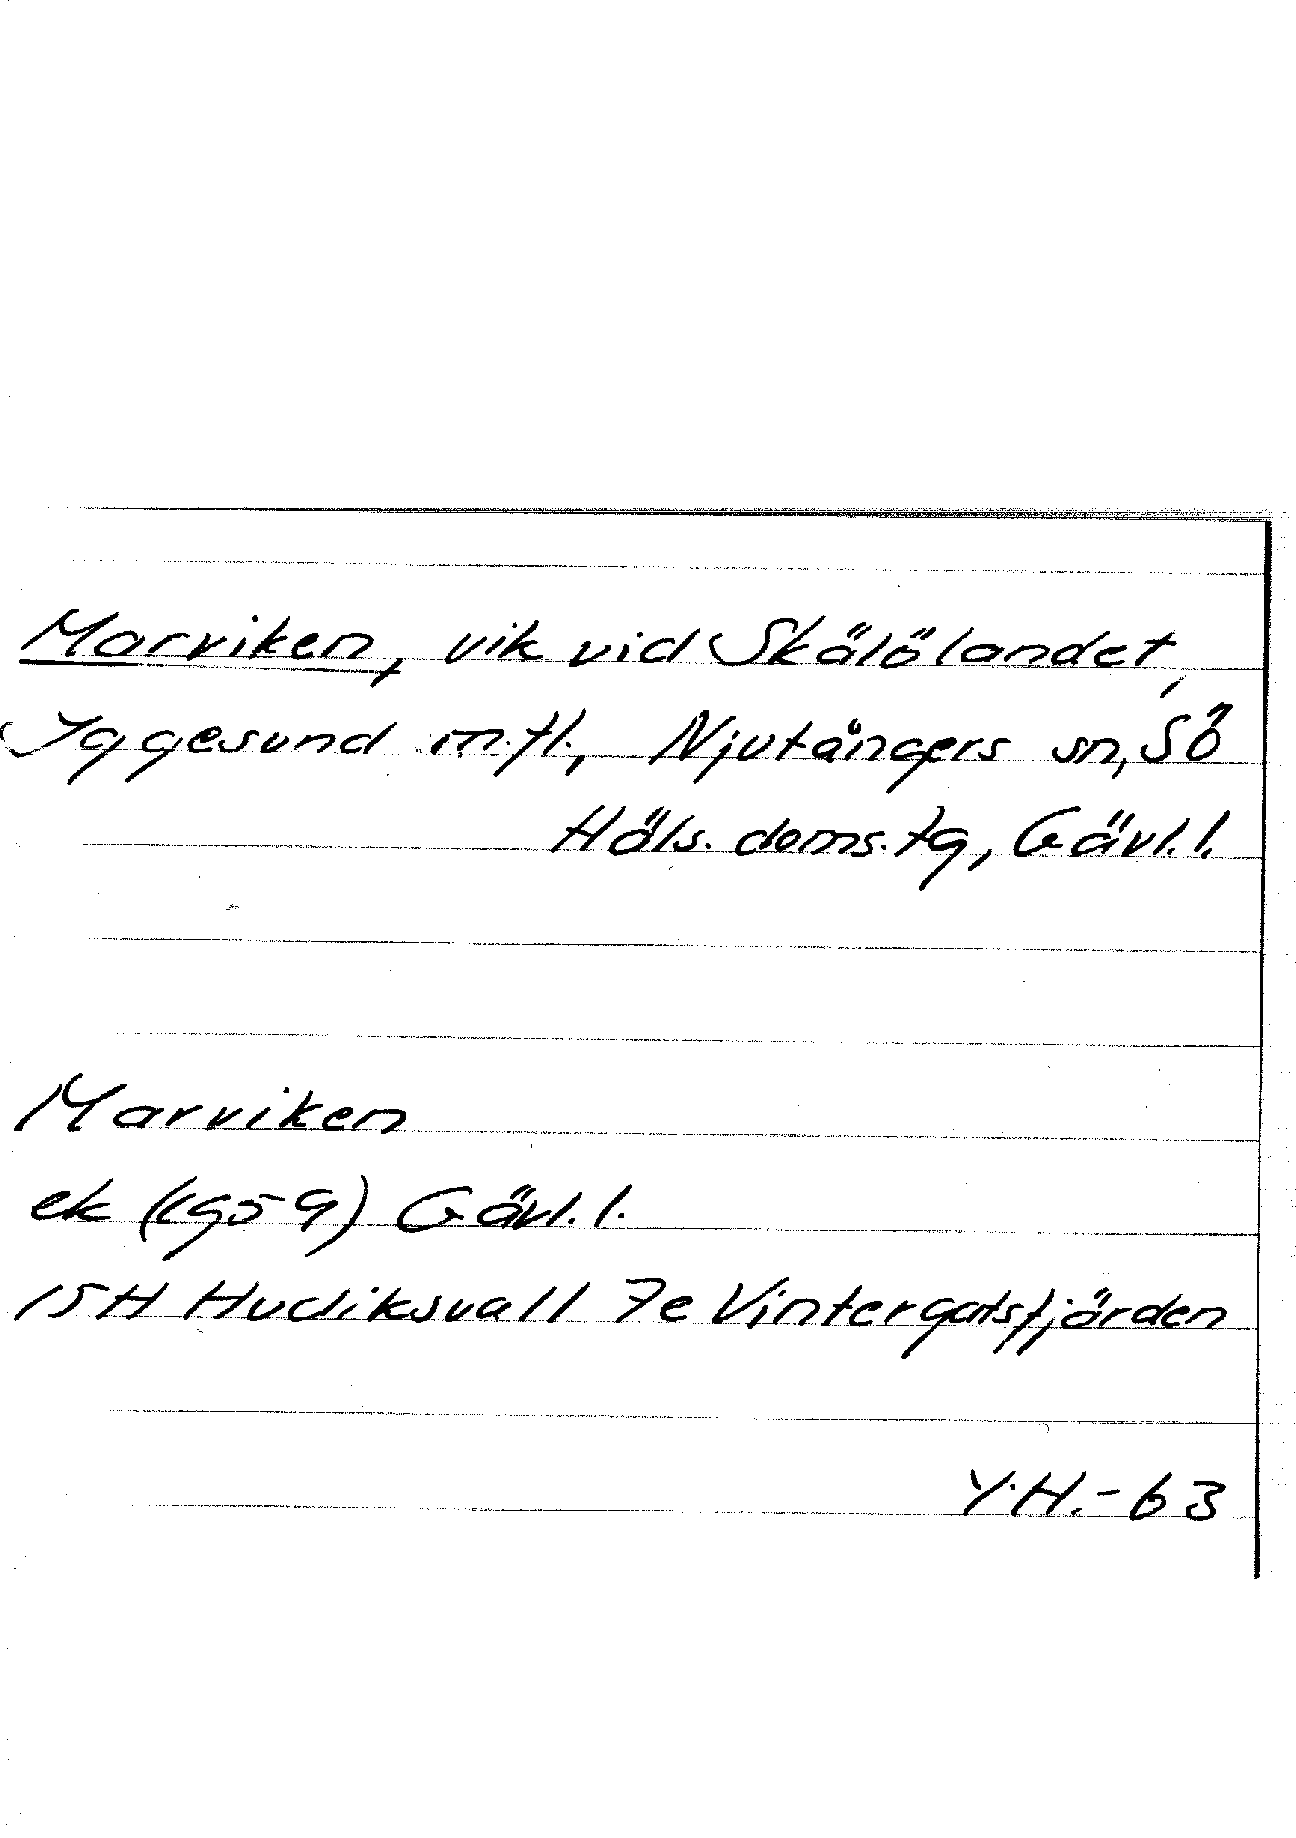 Marviken, vik vid Skälölandet,
Iggesund m.fl., Njutångers sn, SÖ
Häls. doms. tg, Gävl. l.
Marviken
ek (1959) Gävl. l.
15H Hudiksvall 7e Vintergatsfjärden
Y.H.-63